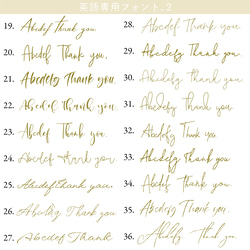 英語専用フォント.2
19. Abcdef Thank you.
20. Abcdef Thank you,
21. Abcdefg Thank you
22. Abcdef Thank you.
23. Abcdef Thank you.
24. Abcdef Thank you
25. Abcdef Thank you.
26. Abcdefg Thank you
27. Abcdef Thank
28. Abcdef Thank you.
29. Abcdefg Thank you.
30. Abcdefg Thank you
31. Abcdefg Thank you
32. Abcdef Thank you
33. Abcdefg Thank you
34. Abcdef Thank you.
35. Abcdefg Thank you.
36. Abcdef Thank you.